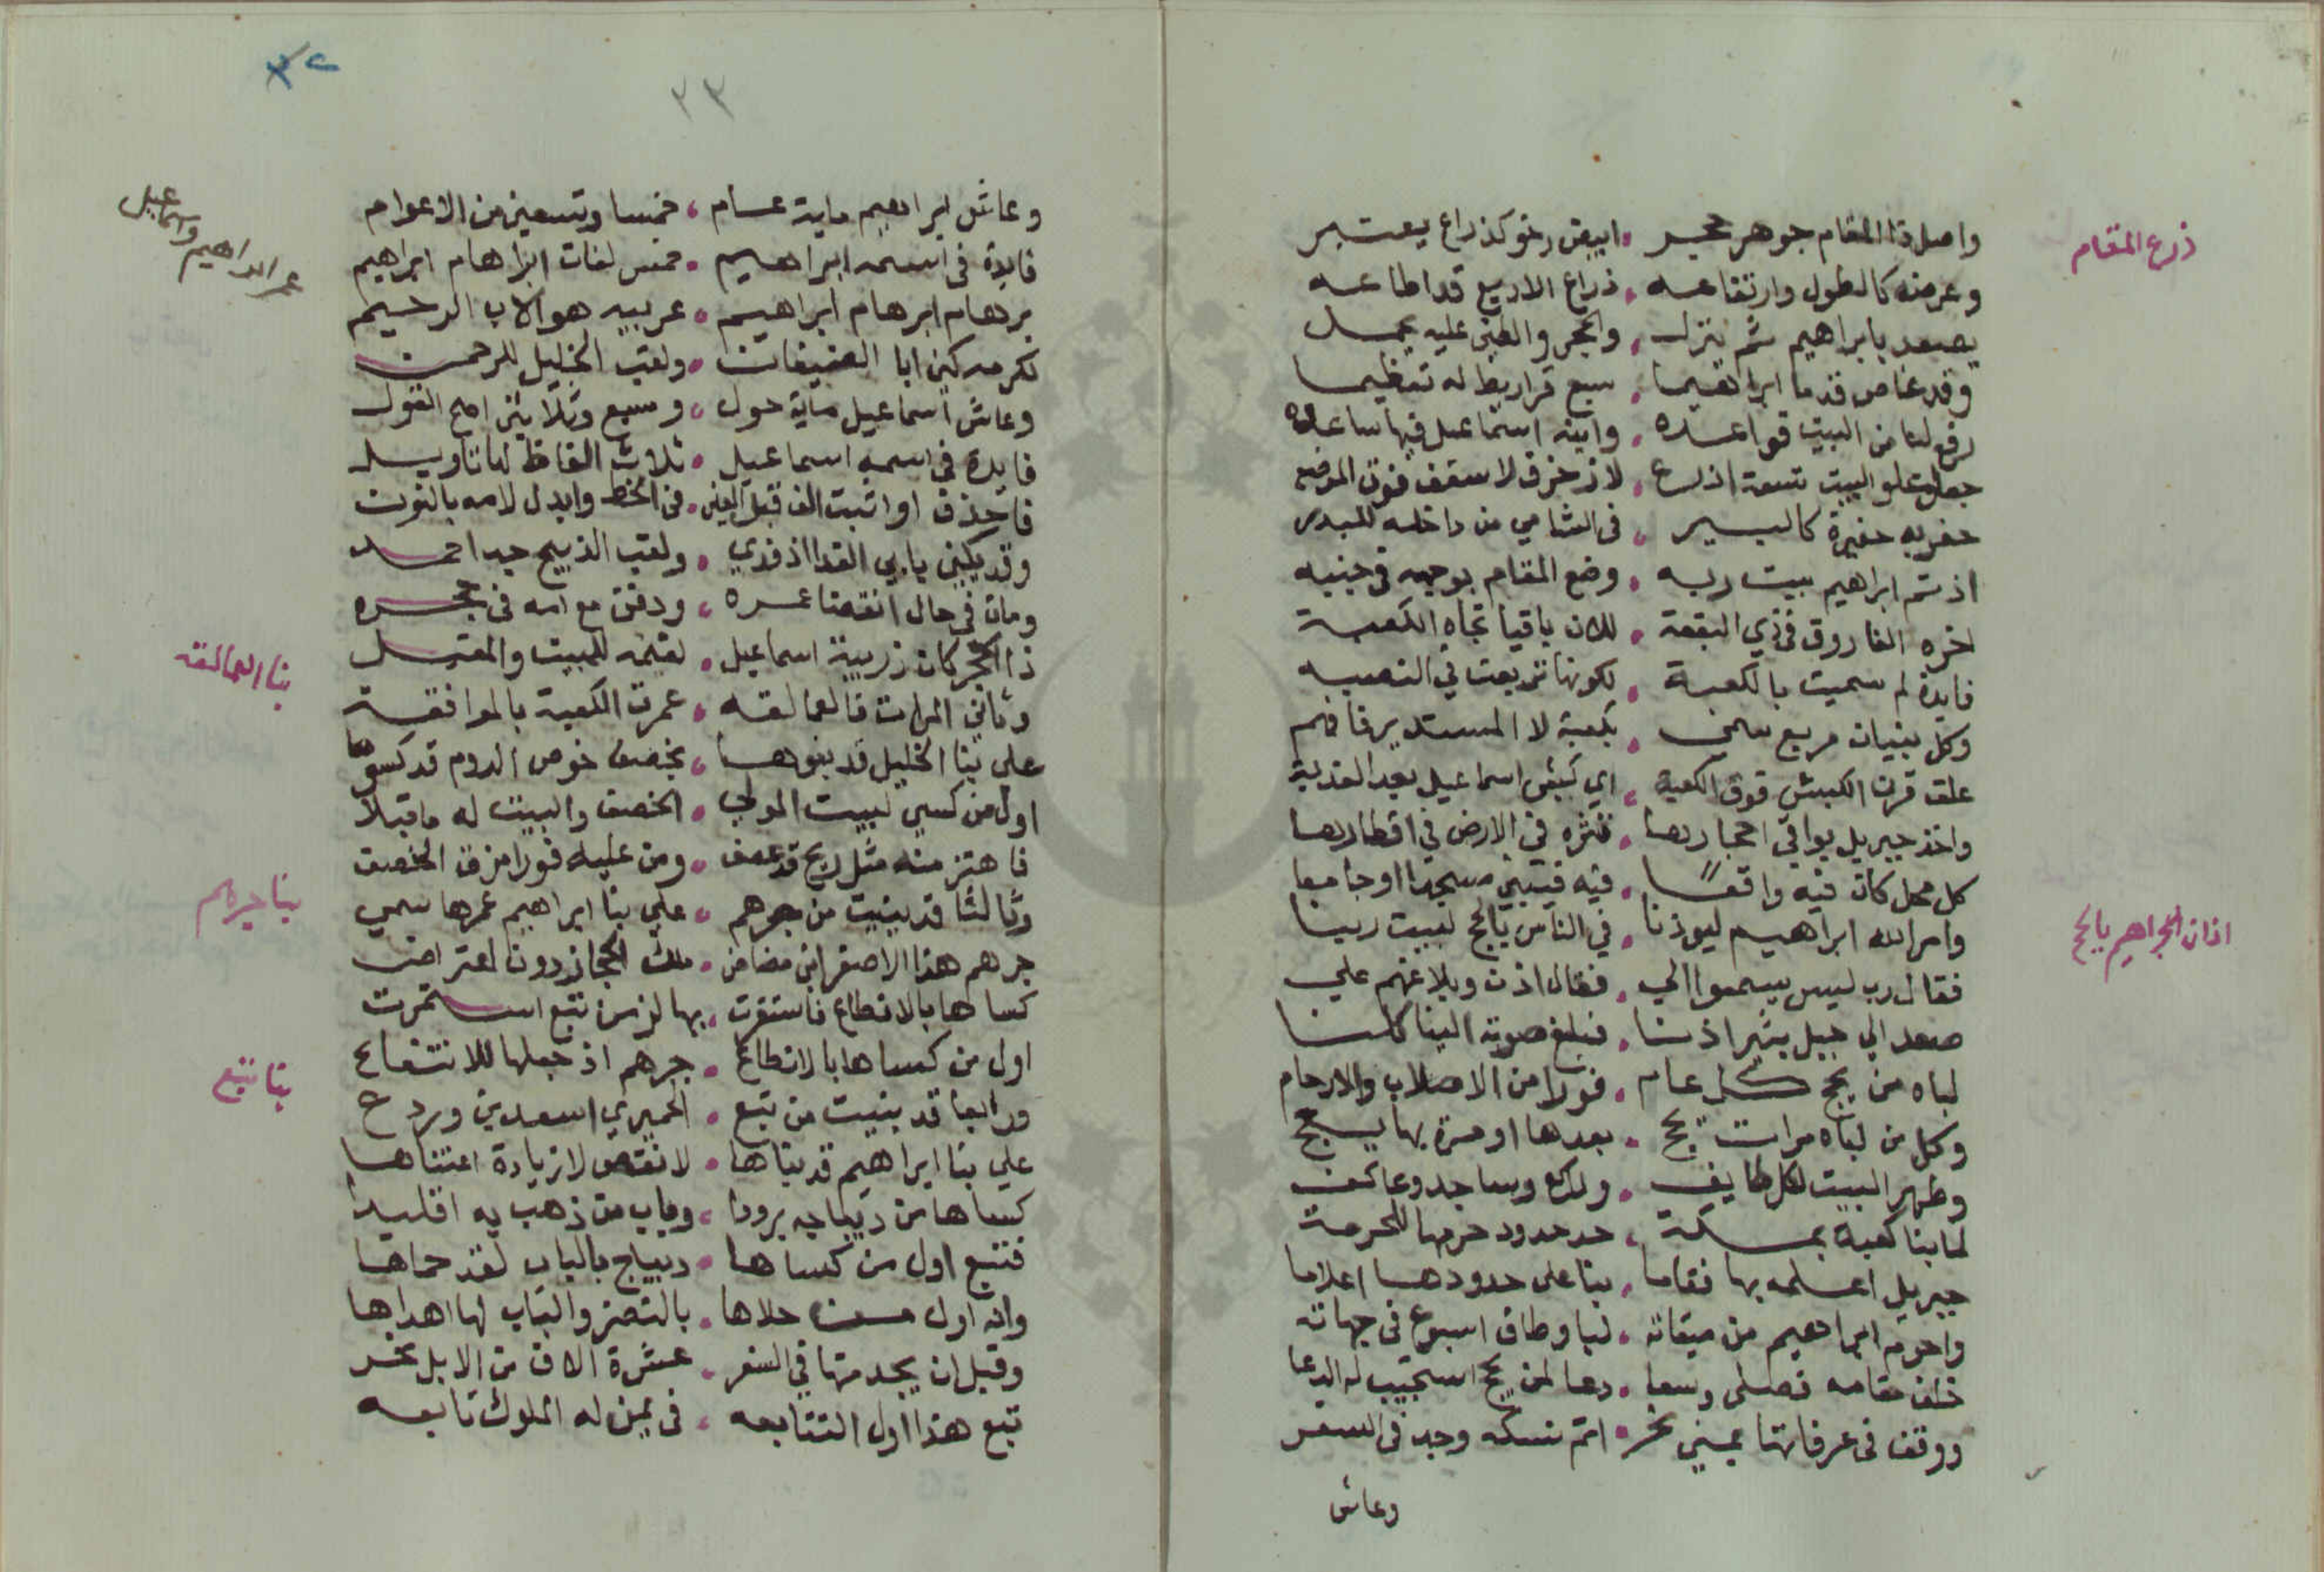 ذرع المقام
واصل ذا المقام جوهر حجر • ابيض رخو كذراع يعتبر
وعرضه كالطول وارتفاعه • ذراع الاربع قد اطاعه
يصعد بابراهيم ثم ينزل • والحجر والطين عليه يحمل
وقد غاص قدما ابراهيما • سبع قراريط له تعظيما
رفع لنا من البيت قواعده • وابنه اسماعيل فيها ساعده
جعل علو البيت تسعة اذرع • لا زخرف لا سقف فوق الموضع
حفر به حفيرة كالبير • في الشامي من داخله
اذ تم ابراهيم بيت ربه • وضع المقام بوجهه في جنبه
اخره الفاروق في ذي البقعة • للان باقيا تجاه الكعبة
فايدة لم سميت بالكعبة • لكونها تربعت في النصبه
وكل بنيان مربع سمي • بكعبة لا المستدير فافهم
علق قرن الكبش فوق الكعبة • اي كبش اسماعيل بعد الفدية
واخذ جبريل بواقي احجارها • فنثره في الارض في اقطارها
كل محل كان فيه واقعا • فيه فيبني مسجدا او جامعا
اذان ابراهيم بالحج
وامر الله ابراهيم ليوذنا • في الناس بالحج لبيت ربنا
فقال رب ليس يسمعوا الي • فقال اذن وبلاغهم علي
صعد الي جبل بثير اذنا • فبلغ صوته الينا كلنا
لباه من يحج كل عام • فورا من الاصلاب والارحام
وكل من لباه مرات يحج • بعدها او مرة بها يحج
وطهر البيت لكل طايف • وراكع وساجد وعاكف
لما بنا كعبة بمكة • حد حدود حرمها للحرمة
جبريل اعلمه بها فقاما • بنا علي حدودها اعلاما
واحرم ابراهيم من ميقاته • لبا وطاف اسبوع في جهاته
خلف مقامه فصلي وسعا • دعا لمن يحج استجيب له الدعا
ووقف في عرفاتها بمني نحر • اتم نسكه وجد في السفر
وعاش
٢٣
٣٢
عمر ابراهيم واسماعيل
وعاش ابراهيم ماية عام • خمسا وتسعين من الاعوام
فايدة في اسمه ابراهيم • خمس لغات ابراهام ابراهيم
برهام ابرهام ابراهيم • عربيه هو الاب الرحيم
لكرمه كني ابا الضيفان • ولقب الخليل للرحمن
وعاش اسماعيل ماية حول • وسبع وثلاثين اصح القول
فايدة في اسمه اسماعيل • ثلاث الفاظ لها تاويل
فاحذف او اثبت الف قبل العين • في الخط وابدل لامه بالنون
وقد يكني بابي الفدا اذ فدي • ولقب الذبيح جد احمد
ومات في حال انقضا عمره • ودفن مع امه في حجره
ذا الحجر كان زريبة اسماعيل • لغنمه للمبيت والمقيل
بنا العمالقه
وثاني المرات فالعمالقه • عمرت الكعبة بالموافقة
علي بنا الخليل قد بنوها • بخصف خوص الدوم قد كسوها
اول من كسي لبيت المولي • الخصف والبيت له ما قبلا
فاهتز منه مثل ريح قد عصف • ومن عليه فورا مزق الخصف
بنا جرهم
وثالثا قد بنيت من جرهم • علي بنا ابراهيم عمرها سمي
جرهم هذا الاصغر ابن مضاض • ملك الحجاز دون اعتراض
كساها بالانطاع فاستقرت • بها لزمن تبع استمرت
اول من كساها بالانطاع • جرهم اذ جعلها للانتفاع
بنا تبع
ورابعا قد بنيت من تبع • الحميري اسعد
علي بنا ابراهيم قد بناها • لا نقص لا زيادة اعتناها
كساها من ديباجه برودا • وباب من ذهب به اقليدا
فتبع اول من كساها • ديباج بالباب لقد حماها
وانه اول حلاها • والباب لها اهداها
وقبل ان يجد منها في السفر • عشرة الاف من الابل نحر
تبع هذا اول التتابعه • في يمن له الملوك تابعه